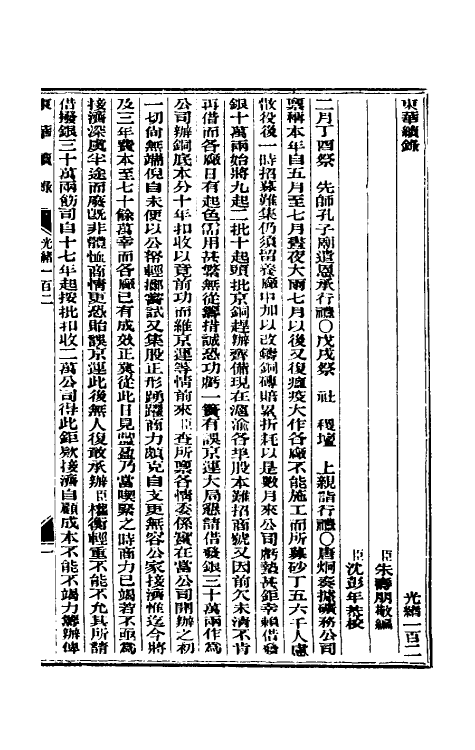 東華續錄
光緒一百二
臣朱壽朋敬編
臣沈彭年恭校
二月丁酉祭　先師孔子廟遣恩承行禮○戊戌祭　社　稷壇　上親詣行禮○唐炯奏據礦務公司
稟稱本年自五月至七月晝夜大雨七月以後又復瘟疫大作各廠不能施工而所募砂丁五六千人慮
散役後一時招募難集仍須留養廠中加以改鑄銅磚賠累折耗以是數月來公司虧墊甚鉅幸賴借發
銀十萬兩始將九起二批十起頭批京銅趕辦齊備現在滬渝各埠股本難招商號又因前欠未清不肯
再借而各廠日有起色需用甚繁無從籌措誠恐功虧一簣有誤京運大局懇請借發銀三十萬兩作爲
公司辦銅底本分十年扣收以竟前功而維京運等情前來臣查所稟各情委係實在當公司開辦之初
一切尙無端倪自未便以公帑輕擲嘗試又集股正形踴躍商力頗克自支更無容公家接濟惟迄今將
及三年費本至七十餘萬幸而各廠已有成效正冀從此日見豐盈乃當喫緊之時商力已竭若不亟爲
接濟深虞半途而廢旣非體恤商情更恐貽誤京運此後無人復敢承辦臣權衡輕重不能不允其所請
借撥銀三十萬兩飭司自十七年起按批扣收二萬公司得此鉅欵接濟自顧成本不能不竭力籌辦俾
東華續錄
光緒一百二
一